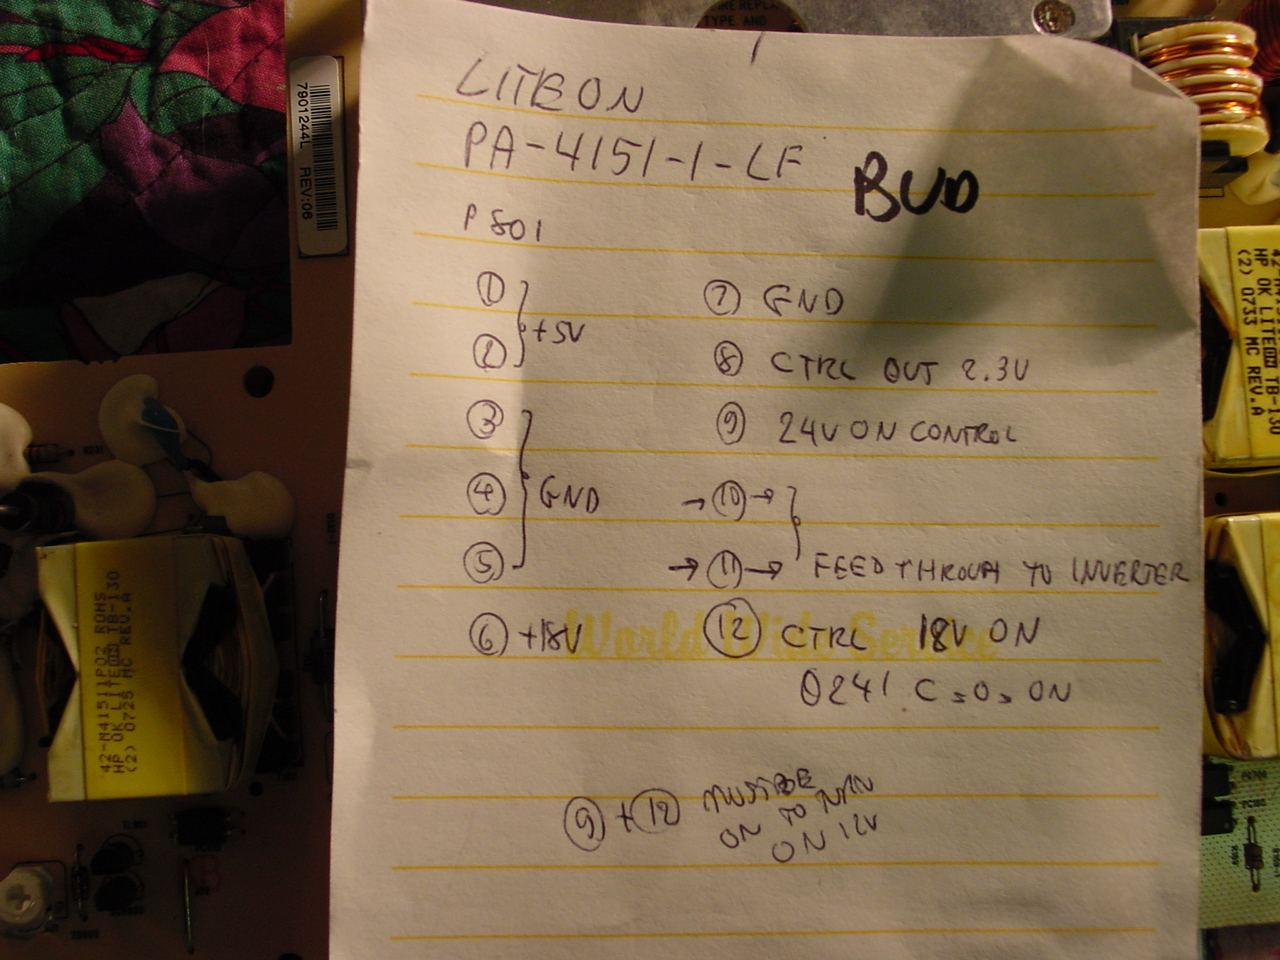 IRE REPLA
TYPE AND
7901244L REV:06
LITEON
PA-4151-1-LF
BUD
P801
① } +5V
②
③ } GND
④
⑤
⑥ +18V
⑦ GND
⑧ CTRL OUT 2.3V
⑨ 24V ON CONTROL
→ ⑩ → }
→ ⑪ → FEED THROUGH TO INVERTER
⑫ CTRL 18V ON
Q241 C = 0 = ON
World Wide Service
⑨ + ⑫ MUST BE
ON TO
ON 12V
42-M41511P02 ROHS
HP OK LITEON TB-130
(2) 0725 MC REV.A
HP OK LITEON TB-130
(2) 0733 MC REV.A